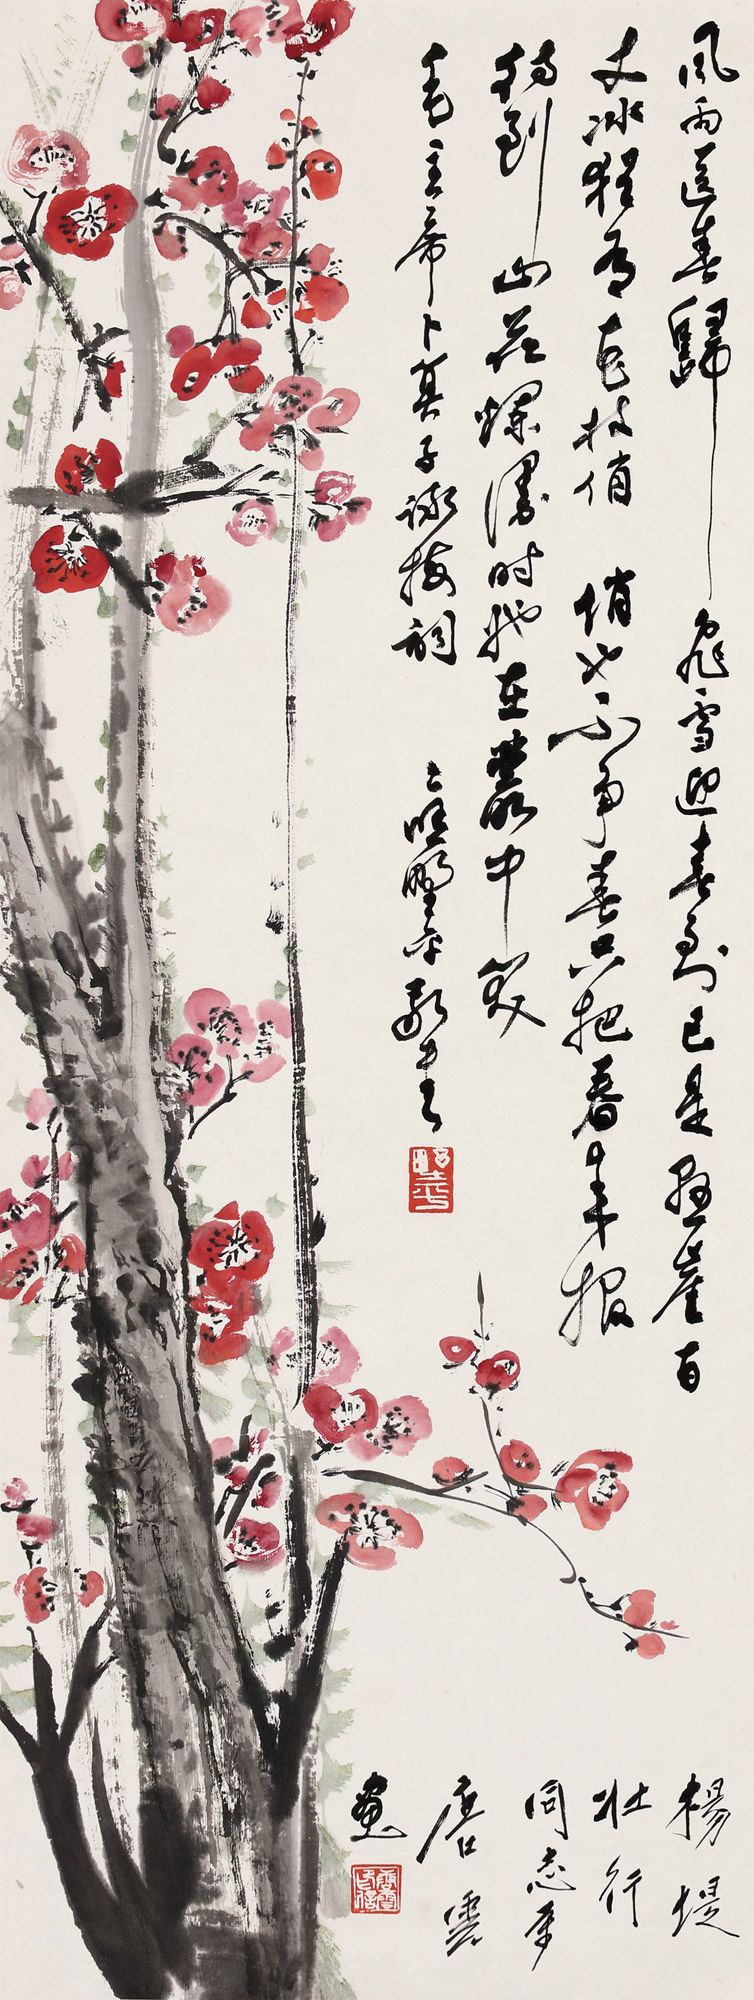 風雨送春歸 飛雪迎春到已是懸崖百
丈冰猶有花枝俏 俏也不争春只把春来報
待到山花爛漫时她在叢中笑
毛主席卜算子詠梅詞
敬書
楊堤
壯行
同志屬
唐雲
畫